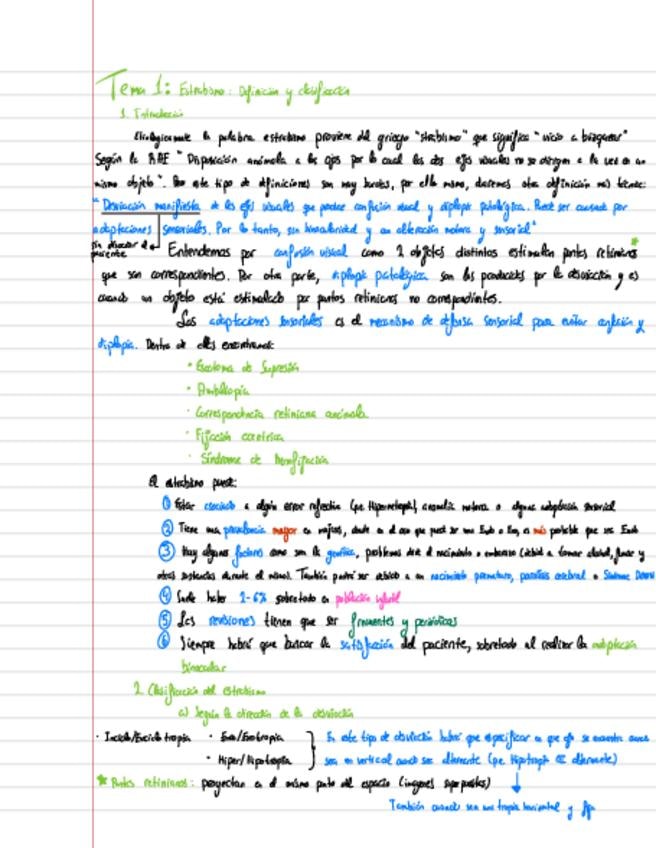 Tema 1: Estrabismo: Definición y clasificación
1. Introducción
Etiológicamente la palabra estrabismo proviene del griego "strabismo" que significa "vicio a bizquear"
Según la RAE "Disposición anómala de los ojos por la cual los dos ejes visuales no se dirigen a la vez en un
mismo objeto". Pero este tipo de definiciones son muy burdas, por ello mismo, daremos otra definición más técnica:
"Desviación manifiesta de los ejes visuales que produce confusión visual y diplopia patológica. Puede ser causada por
adaptaciones sensoriales. Por lo tanto, sin binocularidad y un alteración motora y sensorial"
sin disociar al paciente
Entendemos por confusión visual como 2 objetos distintos estimulan puntos retinianos *
que son correspondientes. Por otra parte, diplopia patológica son las producidas por la desviación y es
cuando un objeto está estimulado por puntos retinianos no correspondientes.
Las adaptaciones sensoriales es el mecanismo de defensa sensorial para evitar confusión y
diplopia. Dentro de ellas encontramos:
· Escotoma de Supresión
· Ambliopía
· Correspondencia retiniana anómala
· Fijación excéntrica
· Síndrome de
El estrabismo puede:
① Estar asociado a algún error refractivo (pe Hipermetropía), anomalía motora o alguna adaptación sensorial
② Tiene una prevalencia mayor en mujeres, donde en el caso que puede ser una Endo o Exo, es más probable que sea Endo
③ Hay algunos factores como son la genética, problemas durante el nacimiento o embarazo (debido a tomar alcohol, fumar y
otras sustancias durante el mismo). También podría ser debido a un nacimiento prematuro, parálisis cerebral o Síndrome Down
④ Suele haber 2-6% sobretodo en población
⑤ Las revisiones tienen que ser frecuentes y periódicas
⑥ Siempre habrá que buscar la satisfacción del paciente, sobretodo al realizar la adaptación
binocular
2. Clasificación del estrabismo
a) Según la dirección de la desviación
· Inciclo/Exciclotropia · Endo/Exotropia } En este tipo de desviación habrá que especificar en que ojo se encuentra aunque
· Hiper/Hipotropia sea en vertical cuando sea alternante (pe. hipotropía alternante)
* Puntos retinianos: proyectan en el mismo punto del espacio (imágenes superpuestas)
También cuando sea una tropia horizontal y fija